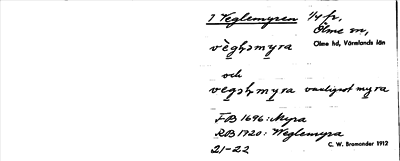 I Veglemyren 1/4 fr,
Ölme sn,
Ölme hd, Värmlands län
och
vanligast myra
FB 1696: Myra
RB 1720: Weglemyra
21-22
C. W. Bromander 1912